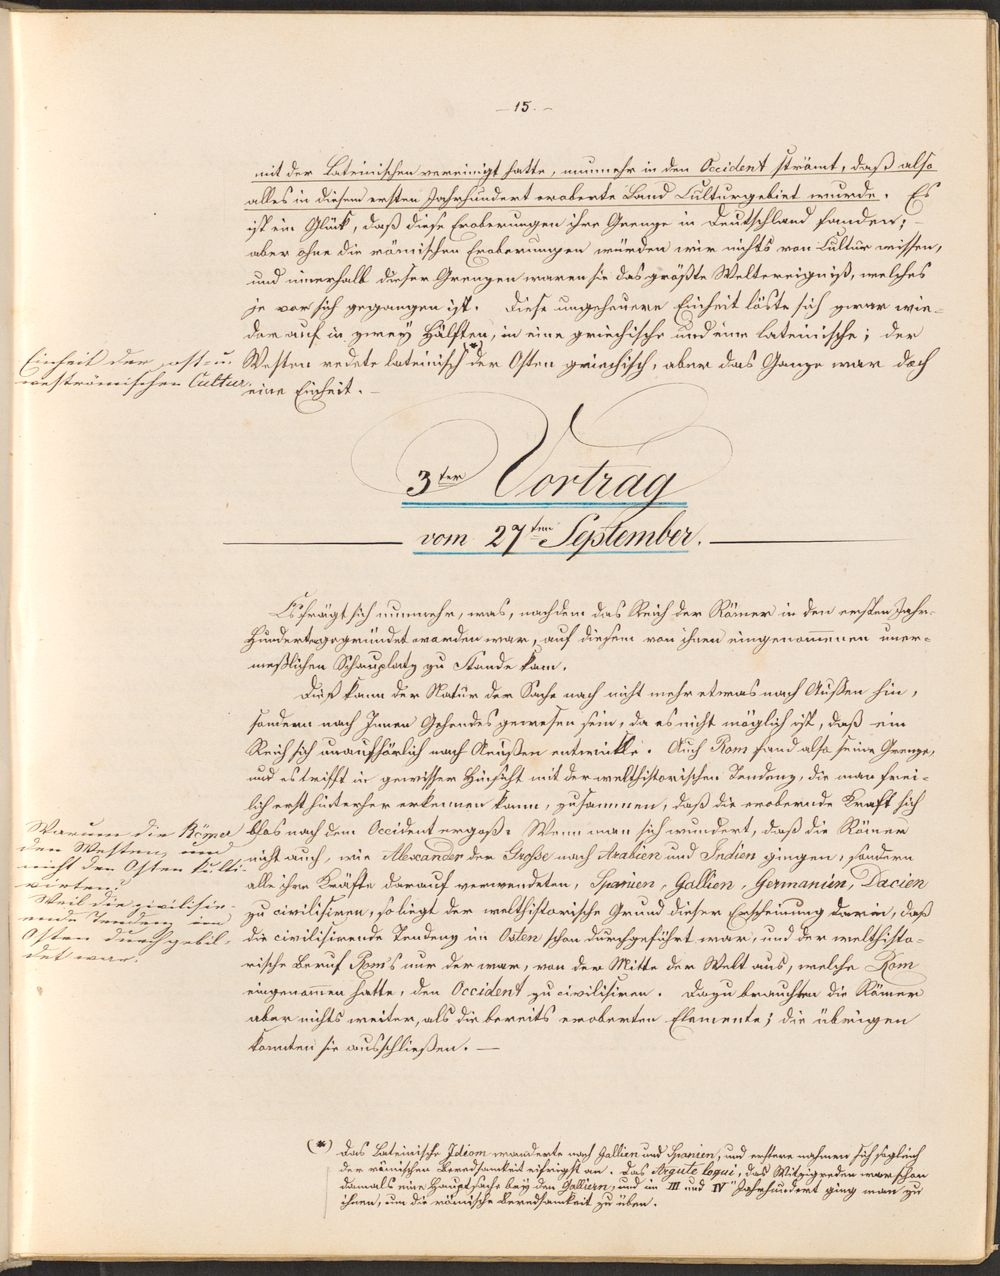 — 15. —
mit der Lateinischen vereinigt hatte, nunmehr in den Occident strömt, daß also
alles in diesem ersten Jahrhundert eroberte Land Culturgebiet wurde. Es
ist ein Glück, daß diese Eroberungen ihre Grenze in Deutschland fanden;
aber ohne die römischen Eroberungen würden wir nichts von Cultur wissen,
und innerhalb dieser Grenzen waren sie das größte Weltereigniß, welches
je vor sich gegangen ist. Diese ungeheuere Einheit löste sich zwar wie-
der auf in zwey Hälften, in eine griechische und eine lateinische; der
Westen redete lateinisch (*) der Osten griechisch, aber das Ganze war doch
eine Einheit. —
Einheit der ost- u.
weströmischen Cultur.
3ter Vortrag
vom 27ten September.
Es frägt sich nunmehr, was, nachdem das Reich der Römer in den ersten Jahr-
hunderten gegründet worden war, auf diesem von ihnen eingenommenen uner-
meßlichen Schauplatz zu Stande kam.
Dieß kann der Natur der Sache nach nicht mehr etwas nach Außen hin,
sondern nach Innen Gehendes gewesen sein, da es nicht möglich ist, daß ein
Reich sich unaufhörlich nach Außen entwickle. Auch Rom fand also seine Grenze,
und es trifft in gewisser Hinsicht mit der welthistorischen Tendenz, die man frei-
lich erst hinterher erkennen kann, zusammen, daß die erobernde Kraft sich
blos nach dem Occident ergoß. Wenn man sich wundert, daß die Römer
nicht auch, wie Alexander der Große nach Arabien und Indien gingen, sondern
alle ihre Kräfte darauf verwendeten, Spanien, Gallien, Germanien, Dacien
zu civilisiren, so liegt der welthistorische Grund dieser Erscheinung darin, daß
die civilisirende Tendenz im Osten schon durchgeführt war, und der welthisto-
rische Beruf Rom's nur der war, von der Mitte der Welt aus, welche Rom
eingenommen hatte, den Occident zu civilisiren. Dazu brauchten die Römer
aber nichts weiter, als die bereits eroberten Elemente; die übrigen
konnten sie ausschließen. —
Warum die Römer
den Westen, und
nicht den Osten kulti-
virten?
Weil die zivilisir-
ende Tendenz im
Osten durchgebil-
det war.
(*) Das Lateinische Idiom wanderte nach Gallien und Spanien, und erstere nahmen sich sogleich
der römischen Beredsamkeit eifrigst an. Das Argute loqui, das Witzigreden war schon
damals eine Hauptsache bey den Galliern, und im III und IV Jahrhundert ging man zu
ihnen, um die römische Beredsamkeit zu üben.